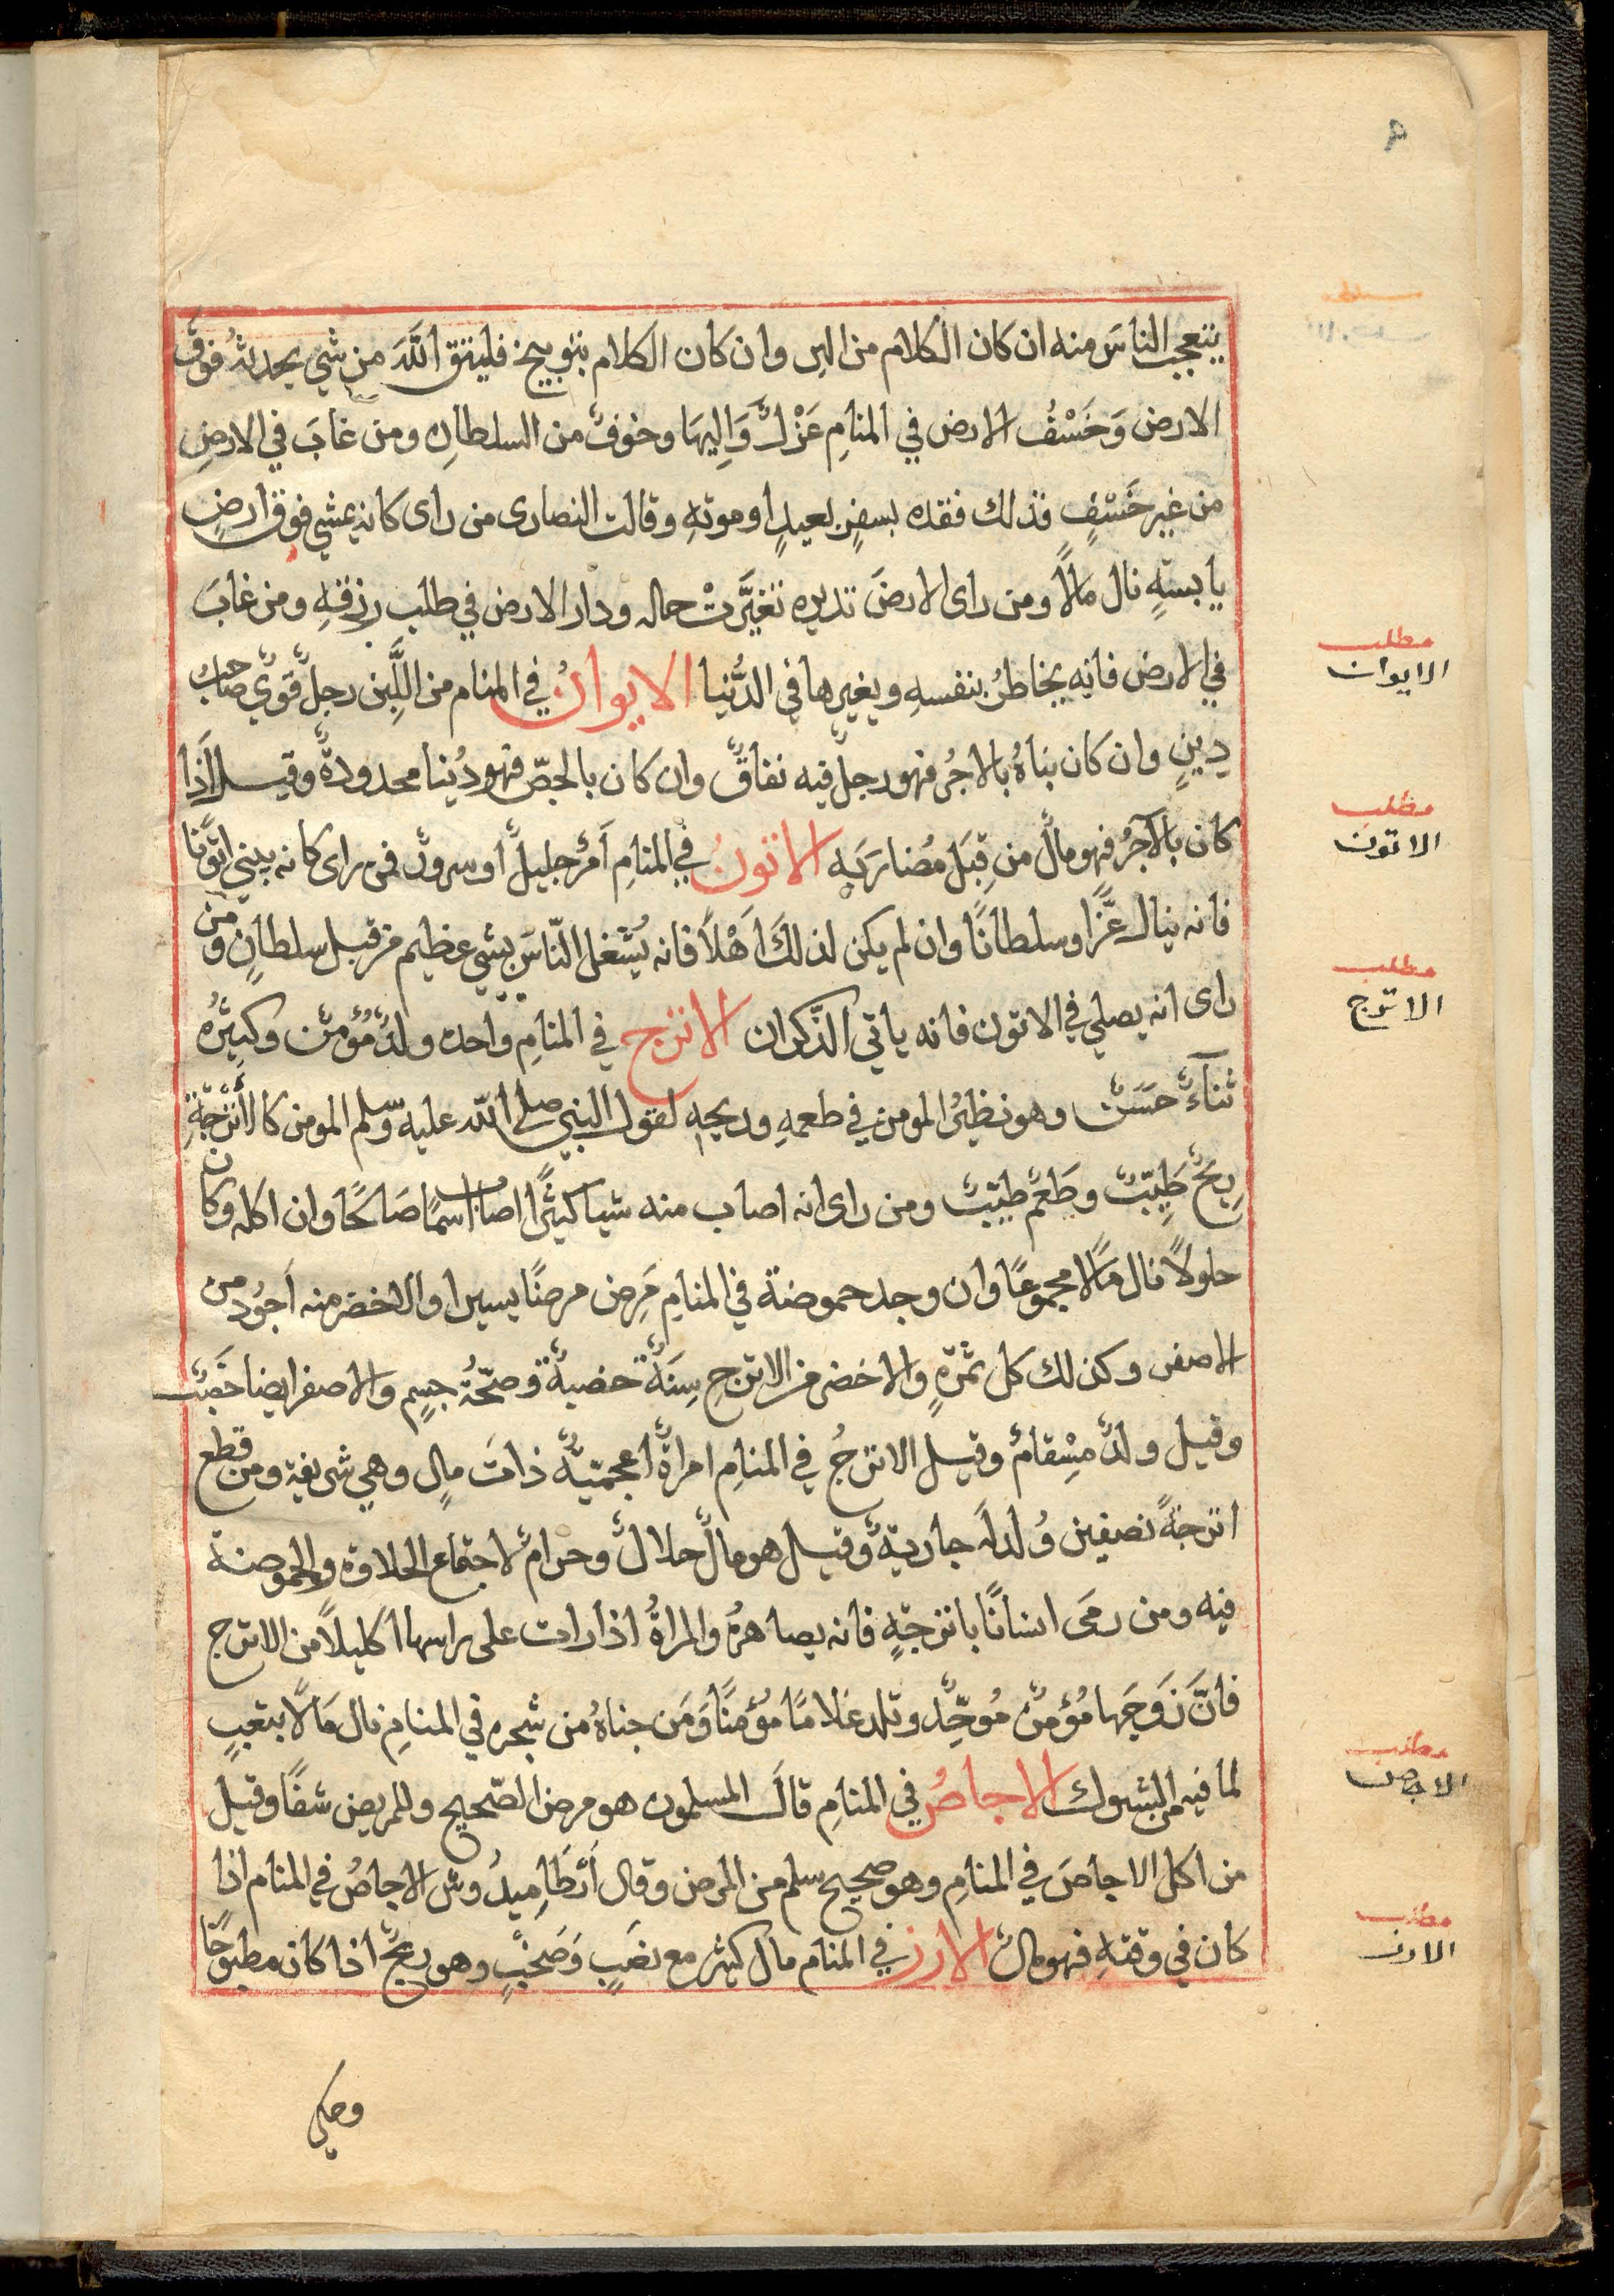 يتعجب الناسَ منه ان كان الكلام من البر وان كان الكلام بتوبيخ فليتق اللَّهَ من شي يحدثهُ فوق
الارض وَخَسْفُ الارض في المنامِ عَزْلٌ وَالِيهَا وخوفٌ من السلطانِ ومن غابَ في الارضِ
من غير خَسْفٍ فذلك فقده بسفرٍ بعيدٍ او موتهِ وقالت النصارى من راى كانه يمشي فوق ارضٍ
يابسةٍ نال مالاً ومن راى الارضَ تديره تغيَّرتْ حاله ودار الارض في طلب رزقهِ ومن غابَ
في الارض فانه يخاطرُ بنفسهِ ويغيرها في الدُّنيا الايوانُ في المنام من اللَّبِن رجلٌ قويٌّ صاحبُ
دِينٍ وان كان بناهُ بالاجُر فهو رجلٌ فيه نفاقٌ وان كان بالجصّ فهو دُنيا محدودةٌ وقيل اَذَا
كان بالآجُر فهو مالٌ من قِبَل مُضارَبَهٍ الاتونُ في المنامِ اَمرٌ جليلٌ او سرورٌ فمن راى كانه يبني اتوًّنا
فانه ينال عزًّا وسلطانًا وان لم يكن لذلكَ اَهْلاً فانه يُشغل النّاسَ بشي عظيم من قبل سلطانٍ ومَن
راى انه يصلي في الاتون فانه ياتي الذّكران الاترج في المنامِ واحده ولدٌ مُؤمنٌ وكثِيرُه
ثناءٌ حسَنٌ وهو نظيرُ المومن في طعمهِ وريحهِ لقول النبي صلى اللّه عليه وسلم المومن كالاُترجّةِ
رِيحٌ طَيّبٌ وطَعمٌ طيبٌ ومن راى انه اصاب منه شيا كثيًرا اصاب اسمًا صَالحًا وان اكله وكان
حلولاً نال مَالًا مجموعًا وان وجد حموضة في المنامِ مَرِض مرضًا يسيرا والاخضر منه اَجوُد من
الاصفر وكذلك كل ثمرَةٍ والاخضر من الاترجِ سِنَةٌ خصبةٌ وصحّةُ جسِمٍ والاصفر ايضا خصبٌ
وقيل ولدٌ مِسْقامٌ وقيل الاترجُ في المنامِ امراةٌ اعجميّةٌ ذاتَ مالٍ وهي شريفة ومن قطع
اترجةً نصفين وُلد لَه جاريةٌ وقيل هو مالٌ حلالٌ وحرامٌ لاجتماع الحلاوة والحموضة
فيه ومن رمَى انسانًا باترجّةٍ فانه يصاهرهُ والمراةُ اذا رات على راسها اكليلًا من الاترج
فانَّ زَوجَها مُؤمنٌ مُوحِّدٌ وتلد غلامًا مؤمنًا وَمَن جناهُ من شجره في المنامِ نال مَالًا بتعبٍ
لما فيه من الشوك الاجاصُ في المنامِ قالَ المسلمون هو مرض الصّحيح وللمريض شفًا وقيل
من اكل الاجاصَ في المنامِ وهو صحيح سلم من المرض وقال اَرْطَاميدُوش الاجاصُ في المنام اذا
كان في وقتهِ فهو مالٌ الارز في المنام مال كثيرٌ مع نصَبٍ وَصَخبٍ وهو ربحٌ اذا كان مطبوخًا
وحكي
مطلب
الايوان
مطلب
الاتون
مطلب
الاترج
مطلب
الاجاص
مطلب
الارز